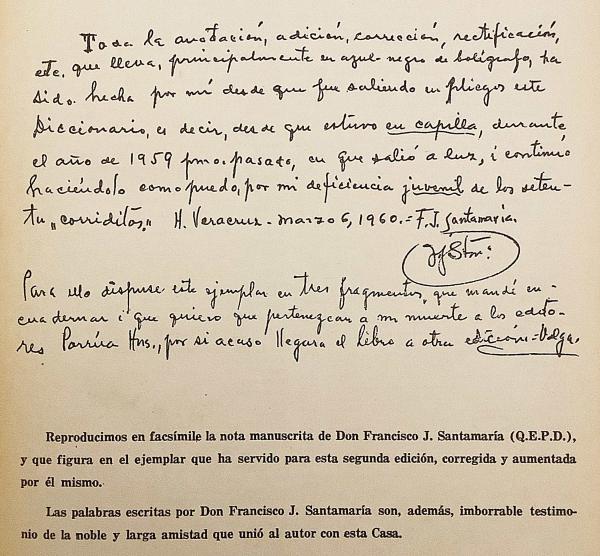 Toda la anotación, adición, corrección, rectificación,
etc. que lleva, principalmente en azul negro de bolígrafo, ha
sido hecha por mí desde que fue saliendo en pliegos este
Diccionario, es decir, desde que estuvo en capilla, durante
el año de 1959 pmo. pasado, en que salió a luz, i continúo
haciéndolo como puedo, por mi deficiencia juvenil de los seten-
ta „corriditos„ H. Veracruz - marzo 6, 1960.= F. J. Santamaría.
Para ello dispuse este ejemplar en tres fragmentos, que mandé en-
cuadernar i que quiero que pertenezcan a mi muerte a los edito-
res Porrúa Hns., por si acaso llegara el libro a otra edición.=Valga.
Reproducimos en facsímile la nota manuscrita de Don Francisco J. Santamaría (Q.E.P.D.),
y que figura en el ejemplar que ha servido para esta segunda edición, corregida y aumentada
por él mismo.
Las palabras escritas por Don Francisco J. Santamaría son, además, imborrable testimo-
nio de la noble y larga amistad que unió al autor con esta Casa.